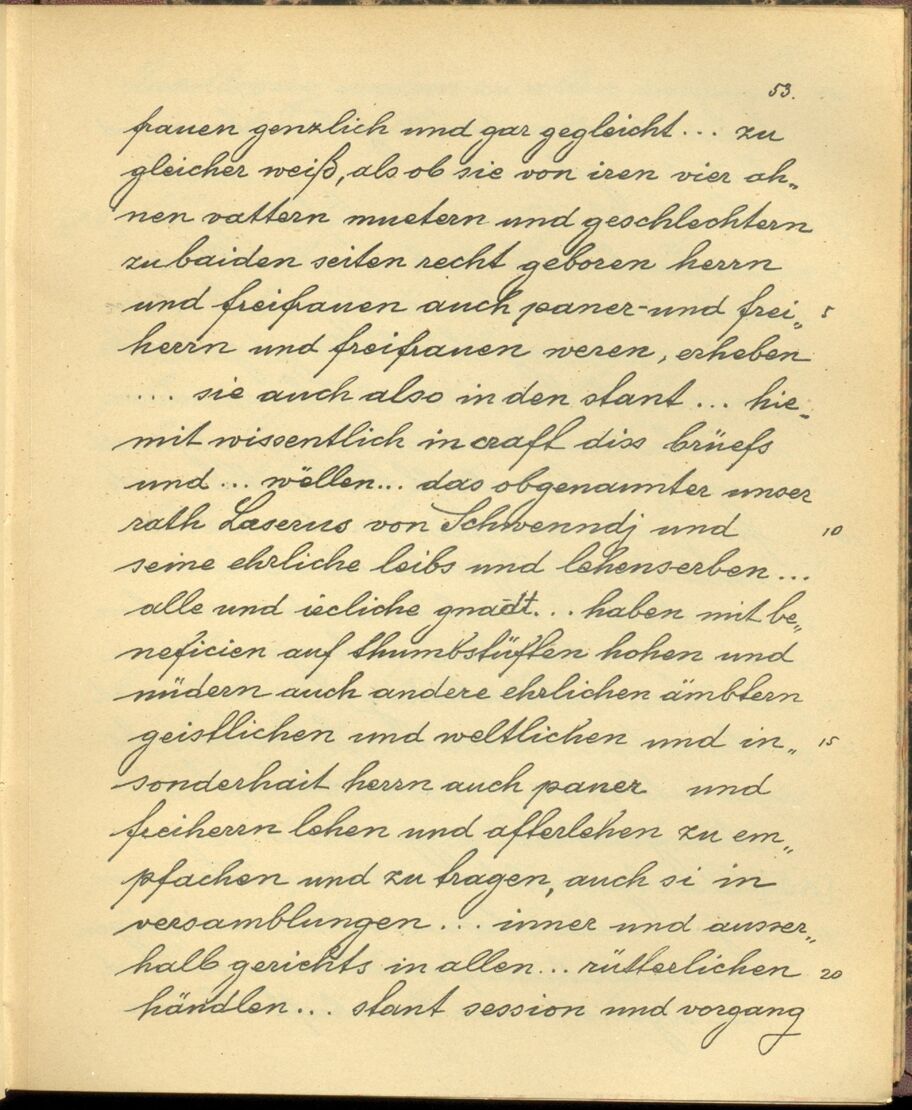 53.
frauen genzlich und gar gegleicht... zu
gleicher weiß, als ob sie von iren vier ah„
nen vattern muetern und geschlechtern
zu baiden seiten recht geboren herrn
und freifrauen auch paner- und frei„ 5
herrn und freifrauen weren, erheben
... sie auch also in den stant... hie„
mit wissentlich in craft diss brüefs
und... wëllen... das obgenannter unser
rath Laserus von Schwenndj und 10
seine ehrliche leibs und lehenserben...
alle und iecliche gnadt... haben mit be„
neficien auf thumbstüften hohen und
nüdern auch andere ehrlichen ämbtern
geistlichen und weltlichen und in„ 15
sonderhait herrn auch paner und
freiherrn lehen und afterlehen zu em„
pfachen und zu tragen, auch si in
versamblungen... inner und ausser„
halb gerichts in allen... rütterlichen 20
händlen... stant session und vorgang